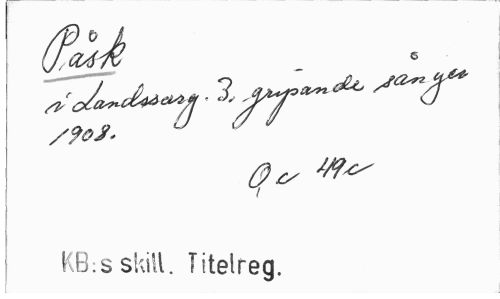 Påsk
i Landssorg. 3. gripande sånger
1908.
Oc 49c
KB:s skill. Titelreg.